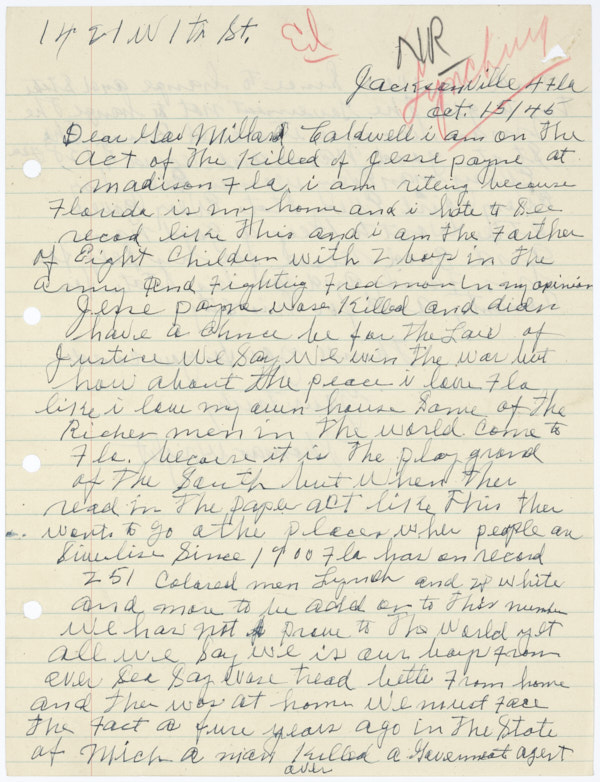 1421 W 1th St.
NR
Lynching
Jacksonville Fla
Oct. 15/45
Dear Gov Millard Caldwell i am on the
act of the Killed of Jesse payne at
Madison Fla. i am riteing because
Florida is my home and i hate to See
recod like This and i am the Farther
of Eight Children with 2 boys in the
army and Fighting Fredmon in my opinion
Jesse payne wase Killed and didn
have a chance be for the Law of
Justice We Say We win the war but
how about the peace i love Fla
like i love my own house Some of the
Richer men in the world come to
Fla. because it is the play grond
of the South but when ther
read in the paper act like This ther
wonts to go athe places wher people are
Sivelise Since 1900 Fla has on record
251 Colored men Lynch and 28 White
and more to be add on to this number
We has not prove to the World yet
all we Say We is our boys From
over Sea Say wase tread better From home
and then was at home We must Face
the Fact a fure years ago in the State
of Mich a man Killed a Goverment agent
over